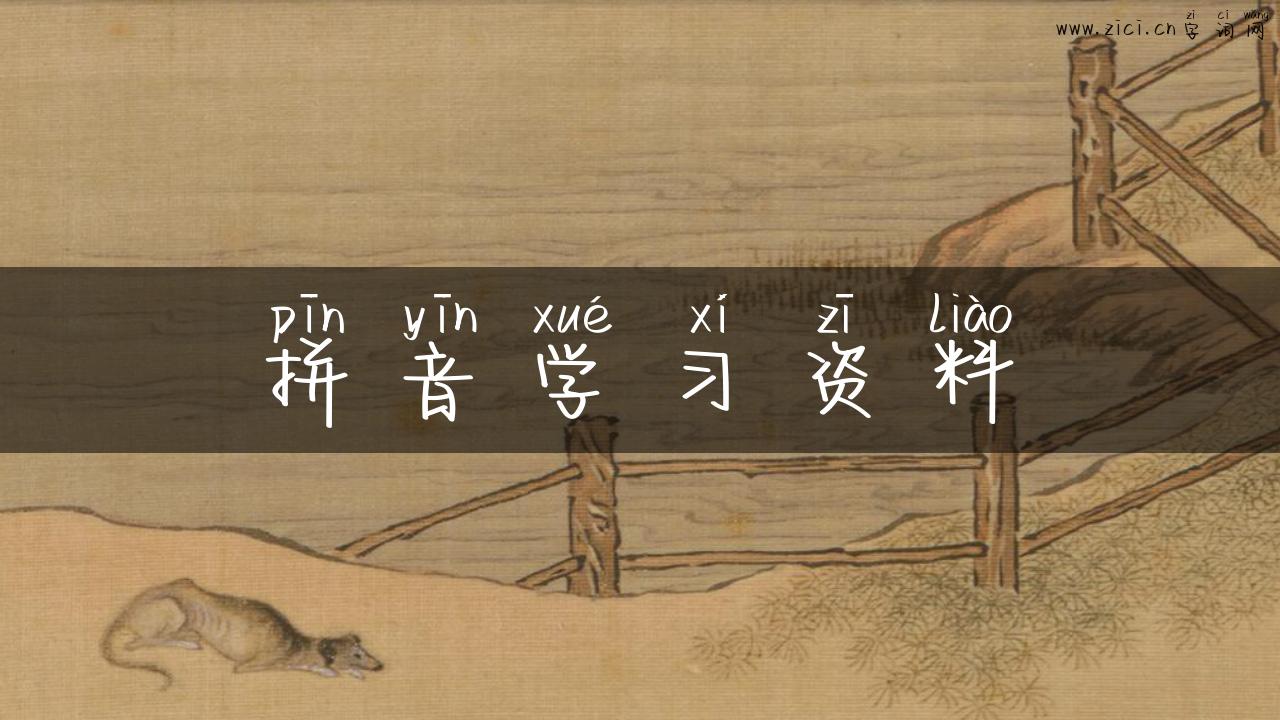 zì cí wǎng
www.zici.cn 字词网
pīn yīn xué xí zī liào
拼音学习资料